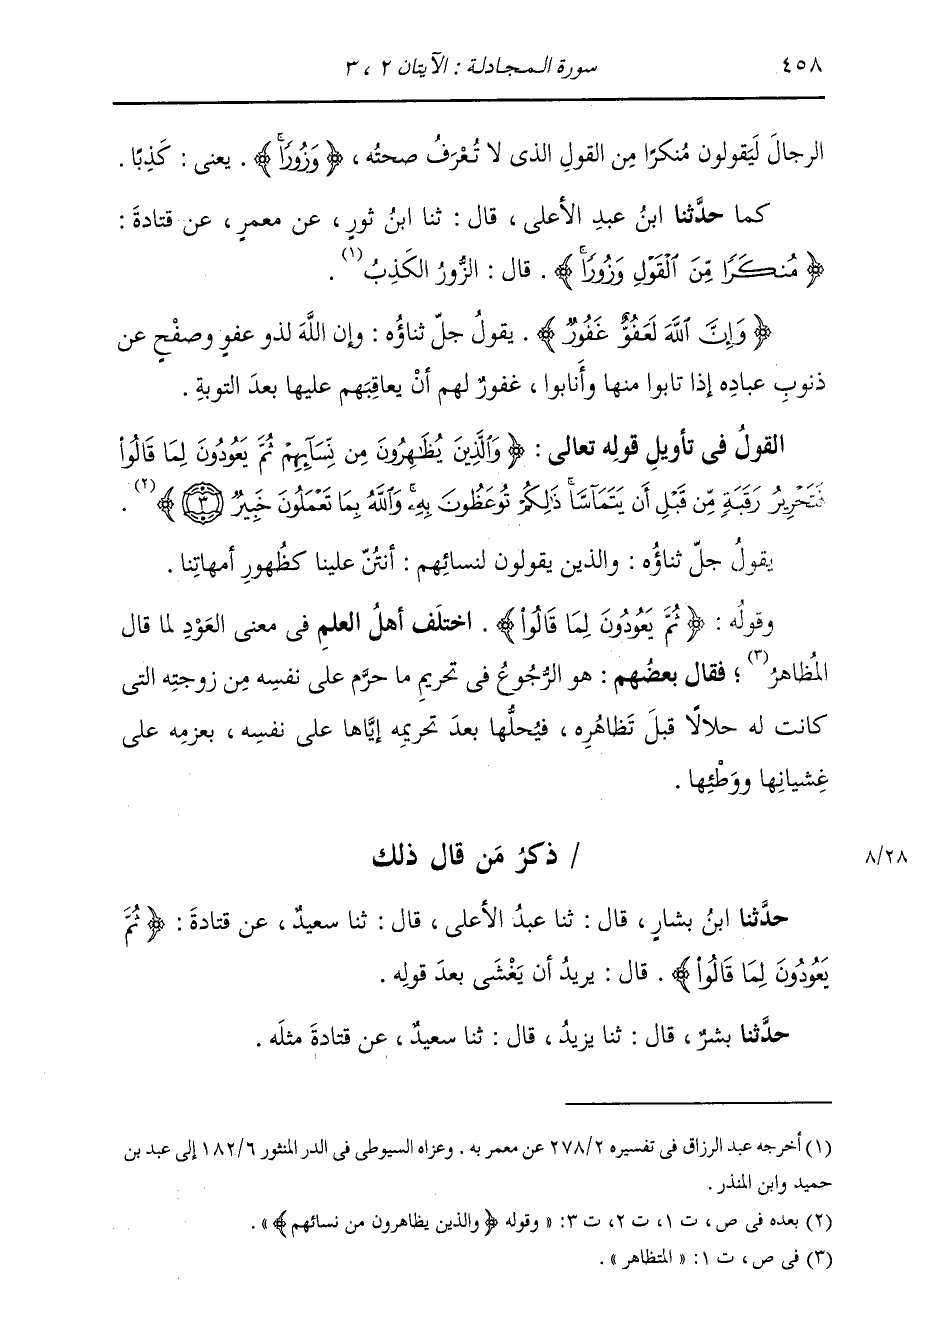 ٤٥٨ سورة المجادلة : الآيتان ٢ ، ٣
الرجالَ لَيَقولون مُنكرًا مِن القولِ الذى لا تُعْرَفُ صحتُه ، ﴿ وَزُورًا ﴾ . يعنى : كَذِبًا .
كما حدَّثنا ابنُ عبدِ الأعلى ، قال : ثنا ابنُ ثورٍ ، عن معمرٍ ، عن قتادةَ :
﴿ مُنكَرًا مِّنَ ٱلْقَوْلِ وَزُورًا ۚ ﴾ . قال : الزُّورُ الكَذِبُ (١) .
﴿ وَإِنَّ ٱللَّهَ لَعَفُوٌّ غَفُورٌ ﴾ . يقولُ جلّ ثناؤُه : وإن اللَّهَ لذو عفوٍ وصفْحٍ عن
ذنوبِ عبادِه إذا تابوا منها وأَنابوا ، غفورٌ لهم أنْ يعاقِبَهم عليها بعدَ التوبةِ .
القولُ فى تأويلِ قولِه تعالى : ﴿ وَٱلَّذِينَ يُظَٰهِرُونَ مِن نِّسَآئِهِمْ ثُمَّ يَعُودُونَ لِمَا قَالُوا۟
فَتَحْرِيرُ رَقَبَةٍ مِّن قَبْلِ أَن يَتَمَآسَّا ۚ ذَٰلِكُمْ تُوعَظُونَ بِهِۦ ۚ وَٱللَّهُ بِمَا تَعْمَلُونَ خَبِيرٌ ٣ ﴾ (٢) .
يقولُ جلّ ثناؤُه : والذين يقولون لنسائِهم : أنتُنّ علينا كظُهورِ أمهاتِنا .
وقولُه : ﴿ ثُمَّ يَعُودُونَ لِمَا قَالُوا۟ ﴾ . اختلَف أهلُ العلمِ فى معنى العَوْدِ لما قال
المُظاهرُ (٣) ؛ فقال بعضُهم : هو الرُّجُوعُ فى تحريمِ ما حرَّم على نفسِه مِن زوجتِه التى
كانت له حلالًا قبلَ تَظاهُرِه ، فيُحلُّها بعدَ تحريمِه إيَّاها على نفسِه ، بعزمِه على
غِشيانِها ووَطْئِها .
/ ذكرُ مَن قال ذلك ٨/٢٨
حدَّثنا ابنُ بشارٍ ، قال : ثنا عبدُ الأعلى ، قال : ثنا سعيدٌ ، عن قتادةَ : ﴿ ثُمَّ
يَعُودُونَ لِمَا قَالُوا۟ ﴾ . قال : يريدُ أن يَغْشَى بعدَ قولِه .
حدَّثنا بشرٌ ، قال : ثنا يزيدُ ، قال : ثنا سعيدٌ ، عن قتادةَ مثلَه .
(١) أخرجه عبد الرزاق فى تفسيره ٢٧٨/٢ عن معمر به . وعزاه السيوطى فى الدر المنثور ١٨٢/٦ إلى عبد بن
حميد وابن المنذر .
(٢) بعده فى ص ، ت ١، ت ٢، ت ٣: « وقوله ﴿ والذين يظاهرون من نسائهم ﴾ » .
(٣) فى ص ، ت ١: « المتظاهر » .